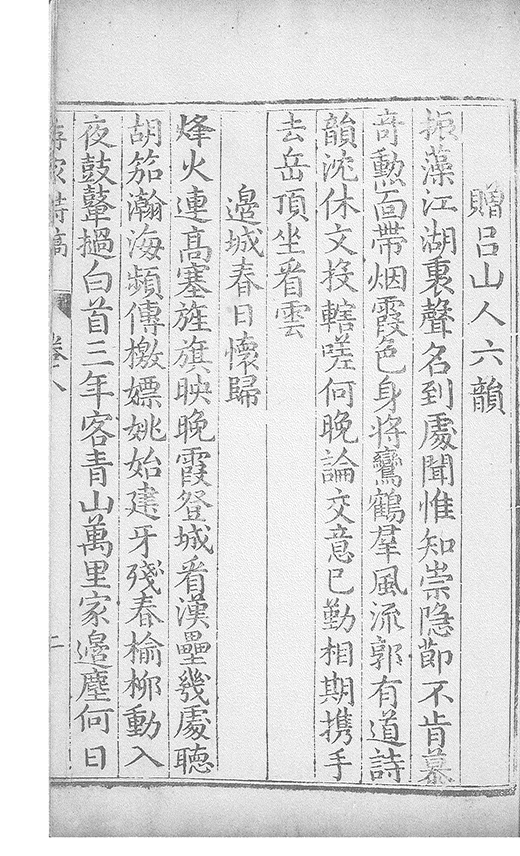 贈呂山人六韻
振藻江湖裏聲名到處聞惟知崇隐節不肯慕
竒勲靣帶烟霞色身将鸞鶴羣風流郭有道詩
韻沈休文投轄嗟何晩論交意已勤相期携手
去岳頂坐看雲
邉城春日懐歸
烽火連高塞旌旗映晩霞登城看漢壘幾處聴
胡笳瀚海頻傳檄嫖姚始建牙殘春榆栁動入
夜鼓鼙撾白首三年客青山萬里家邉塵何日
家詩稿 卷八 二